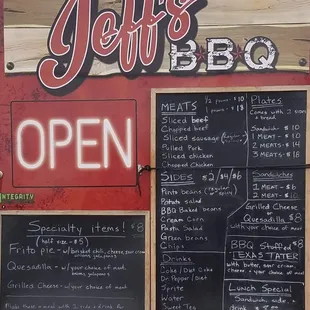 Jeff's
BBQ
OPEN
INTEGRITY
MEATS
1/2 pound - $10
1 pound - $18
Sliced beef
Chopped beef
Sliced sausage (regular &
Pulled Pork
Sliced chicken
Chopped Chicken
SIDES $2/$4/$6
Pinto beans
Potato salad
BBQ Baked beans
Cream Corn
Pasta Salad
Green beans
Chips
Drinks
Coke/Diet Coke
Dr. Pepper/Diet
Sprite
Water
Sweet Tea
Plates
Comes with 2 sides
+ bread
Sandwich - $10
1 MEAT - $10
2 MEATS - $14
3 MEATS - $18
Sandwiches
1 MEAT - $6
2 MEATS - $10
Grilled Cheese or
Quesadilla $8
with your choice of meat
BBQ Stuffed $8
TEXAS TATER
with butter, sour cream,
cheese + your choice of meat
Lunch Special
Sandwich, side,
+ drink
Specialty items! $8
(half size - $5)
Frito pie - w/ brisket chili, cheese, sour cream,
onions, jalapenos
Quesadilla - w/ your choice of meat,
Grilled Cheese - w/ your choice of meat